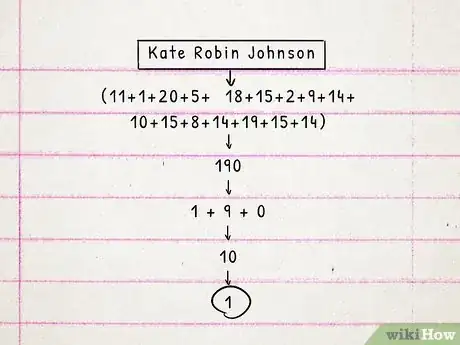 Kate Robin Johnson
(11+1+20+5+ 18+15+2+9+14+
10+15+8+14+19+15+14)
190
1 + 9 + 0
10
1
wikiHow